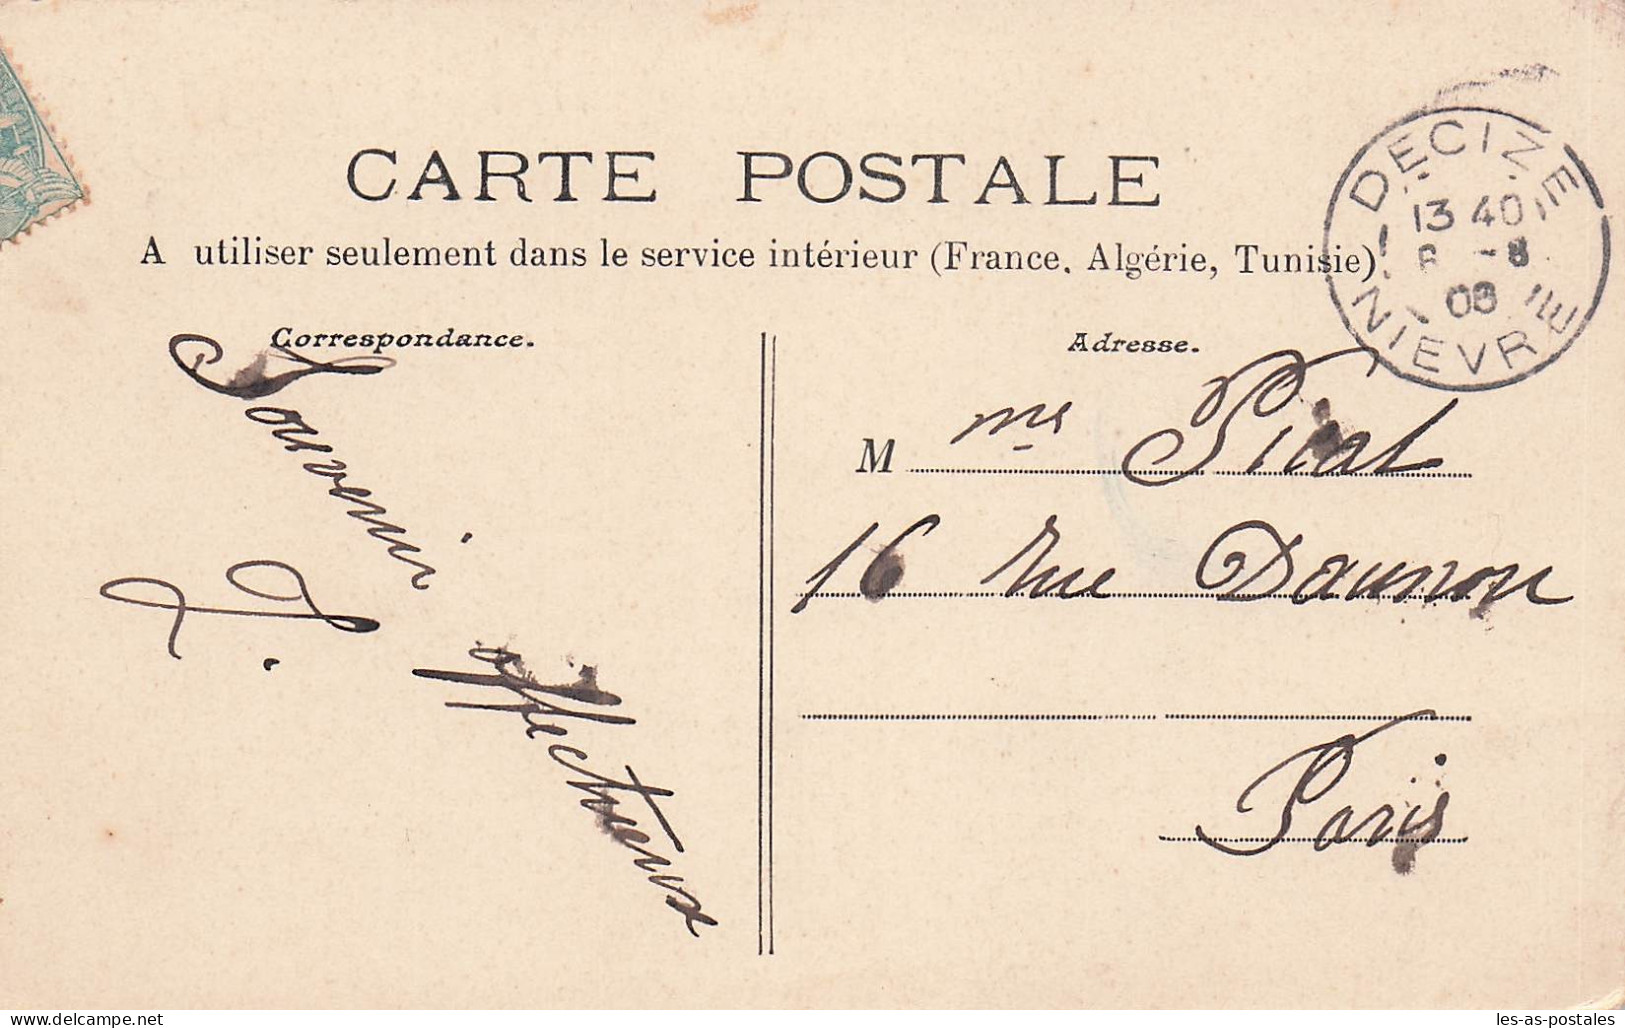 CARTE POSTALE
A utiliser seulement dans le service intérieur (France, Algérie, Tunisie)
DECIZE
13 40
8 -8
08
NIEVRE
Correspondance.
Souvenir
affectueux
Adresse.
M me Picat
16 rue Daunou
Paris
delcampe.net
les-as-postales